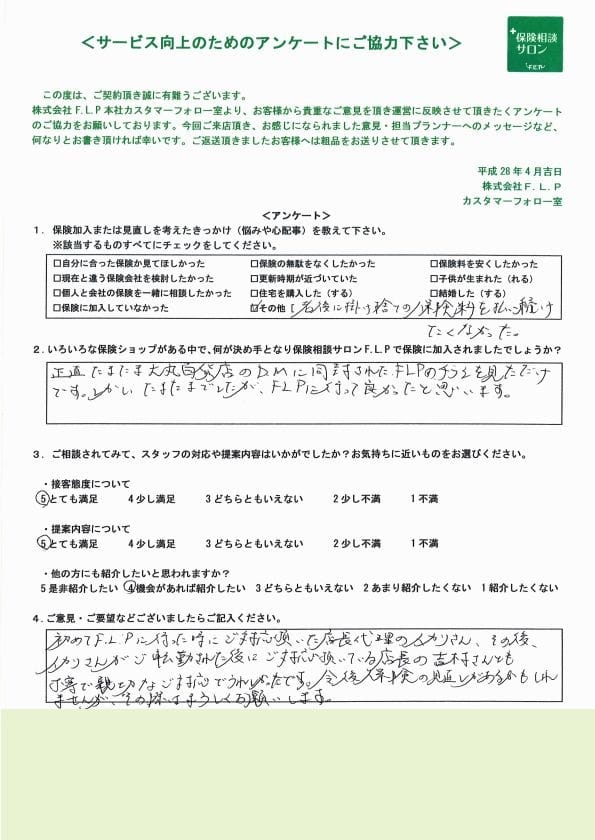 ＜サービス向上のためのアンケートにご協力下さい＞
+保険相談
サロン
F.L.P
この度は、ご契約頂き誠に有難うございます。
株式会社F.L.P本社カスタマーフォロー室より、お客様から貴重なご意見を頂き運営に反映させて頂きたくアンケート
のご協力をお願いしております。今回ご来店頂き、お感じになられました意見・担当プランナーへのメッセージなど、
何なりとお書き頂ければ幸いです。ご返送頂きましたお客様へは粗品をお送りさせて頂きます。
平成28年4月吉日
株式会社F.L.P
カスタマーフォロー室
＜アンケート＞
1．保険加入または見直しを考えたきっかけ（悩みや心配事）を教えて下さい。
※該当するものすべてにチェックをしてください。
□自分に合った保険か見てほしかった □保険の無駄をなくしたかった □保険料を安くしたかった
□現在と違う保険会社を検討したかった □更新時期が近づいていた □子供が生まれた（れる）
□個人と会社の保険を一緒に相談したかった □住宅を購入した（する） □結婚した（する）
□保険に加入していなかった ☑その他（老後に掛け捨ての保険料を払い続け
たくなかった。
2．いろいろな保険ショップがある中で、何が決め手となり保険相談サロンF.L.Pで保険に加入されましたでしょうか？
正直たまたま大丸百貨店のDMに同封されたFLPのチラシを見ただけ
です。しかし、たまたまでしたが、FLPに行って良かったと思います。
3．ご相談されてみて、スタッフの対応や提案内容はいかがでしたか？お気持ちに近いものをお選びください。
・接客態度について
⑤とても満足 4少し満足 3どちらともいえない 2少し不満 1不満
・提案内容について
⑤とても満足 4少し満足 3どちらともいえない 2少し不満 1不満
・他の方にも紹介したいと思われますか？
5是非紹介したい ④機会があれば紹介したい 3どちらともいえない 2あまり紹介したくない 1紹介したくない
4．ご意見・ご要望などございましたらご記入ください。
初めてF.L.Pに行った時にご対応頂いた店長代理のイカリさん、その後、
イカリさんがご転勤された後にご対応頂いている店長の吉村さんとも
丁寧で親切なご対応でうれしかったです。今後保険の見直しがあるかもしれ
ませんが、その際はよろしくお願いします。